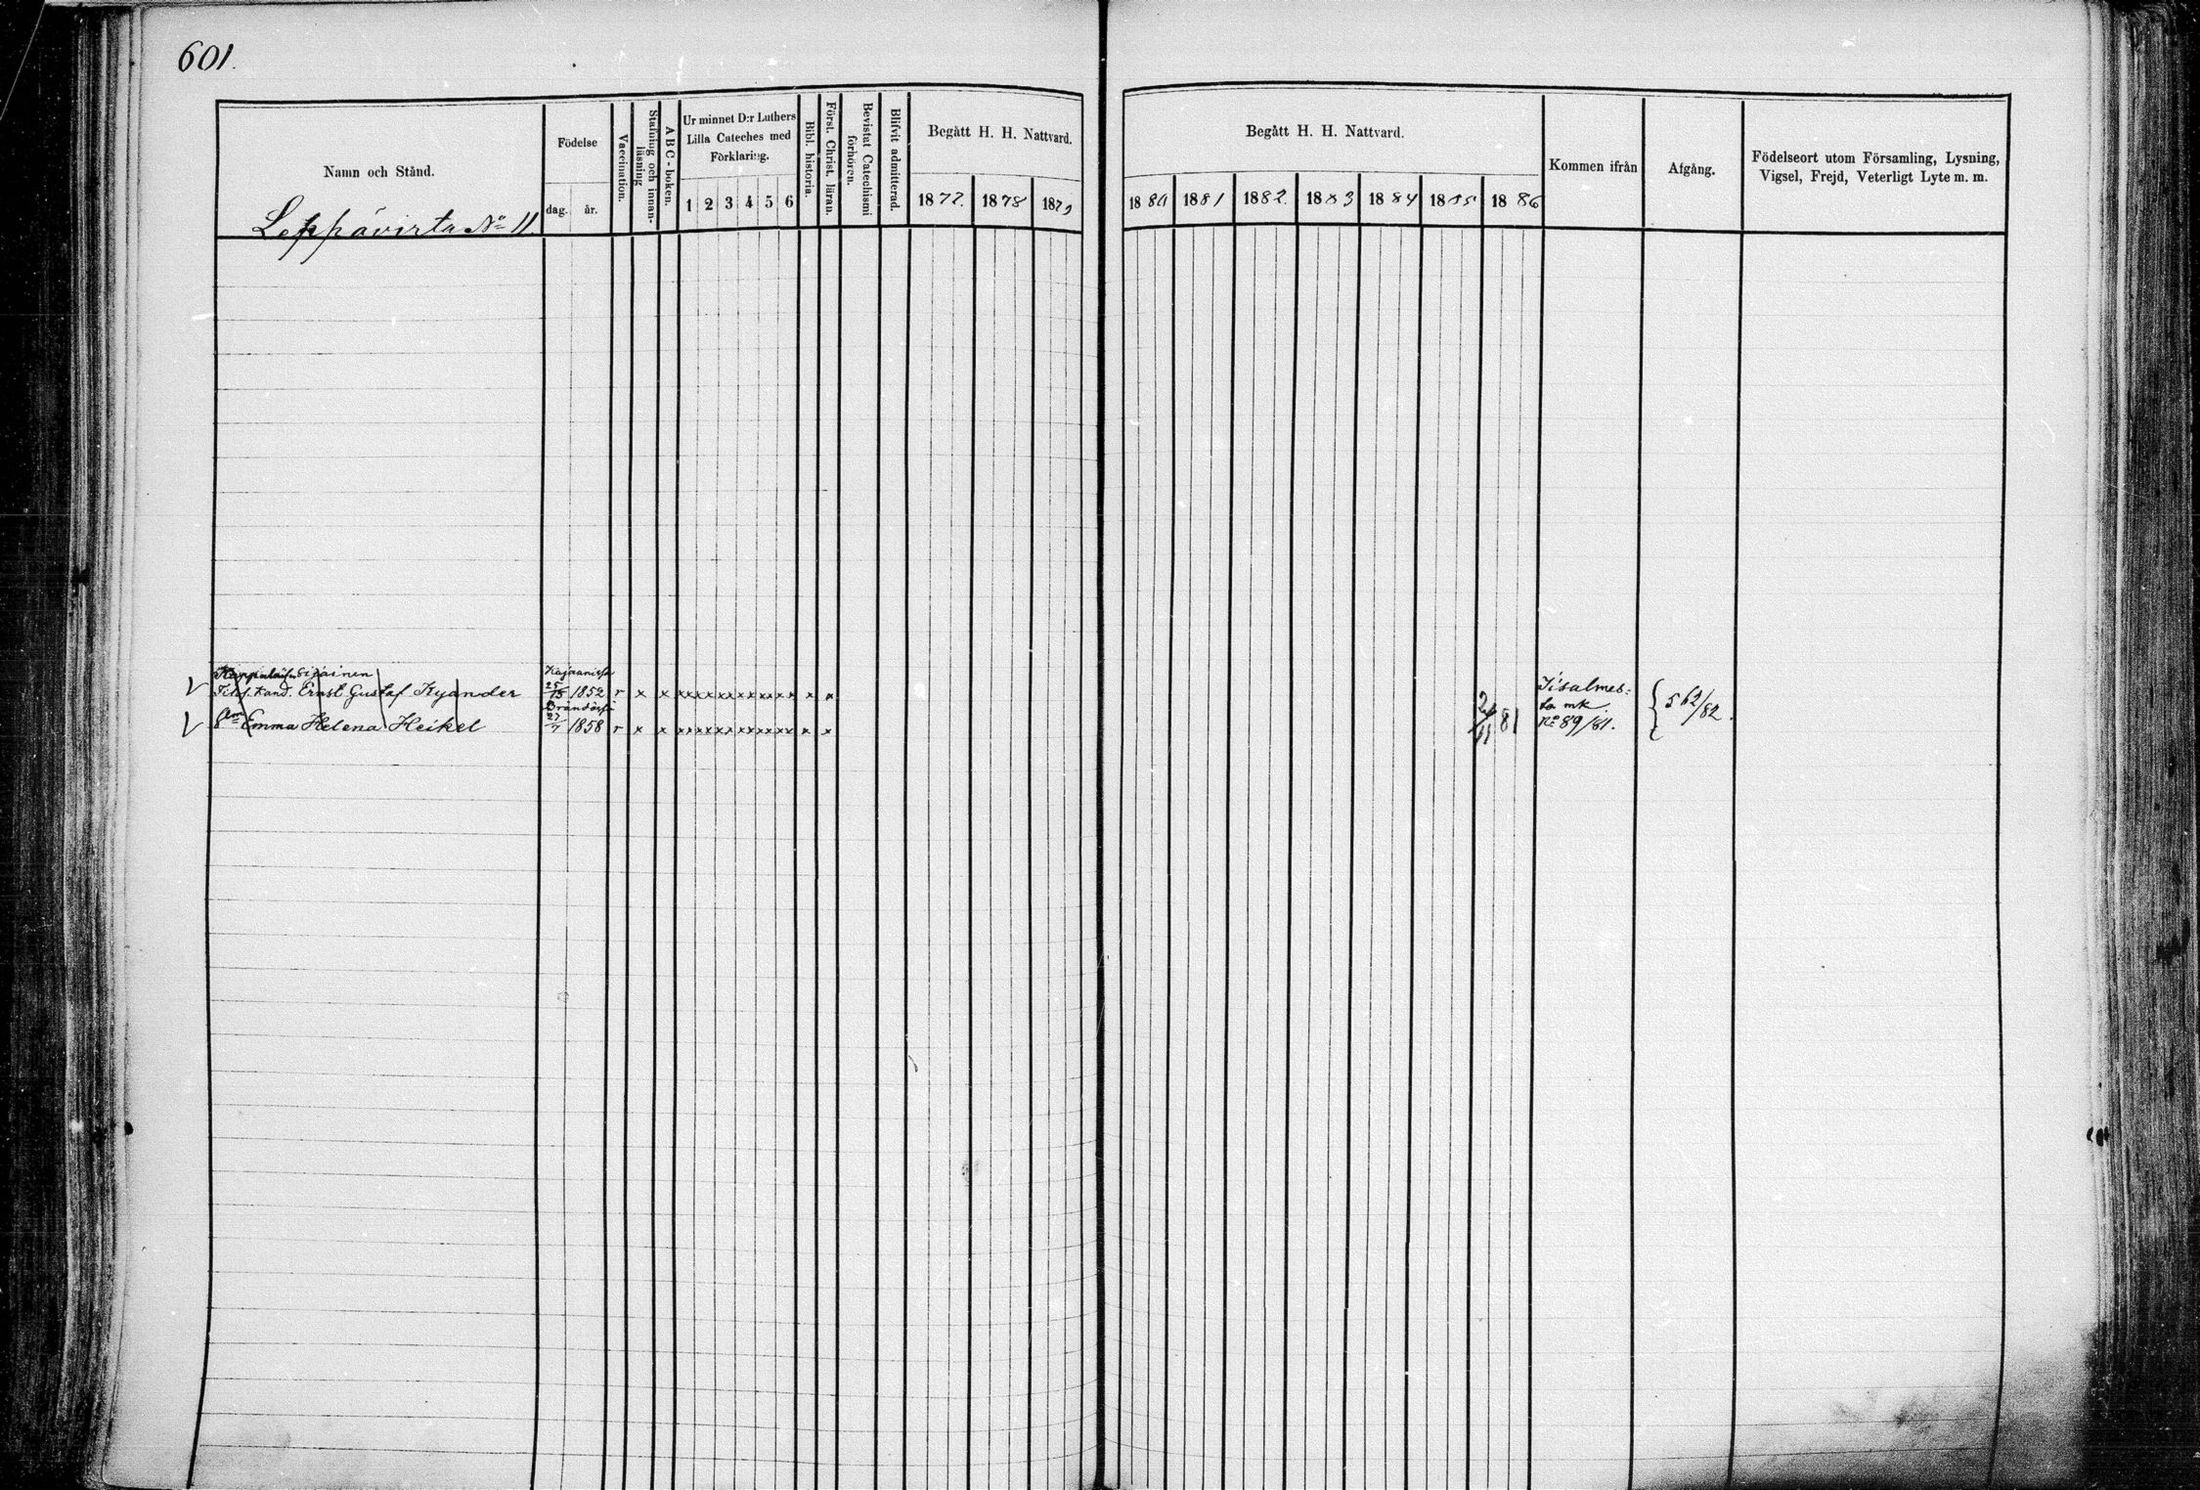 601.
Namn och Stånd.
Leppävirta No 11
Födelse
dag. år.
Vaccination.
Stafning och innan-
läsning
ABC-boken.
Ur minnet D:r Luthers
Lilla Cateches med
Förklaring.
1 2 3 4 5 6
Bibl. historia.
Först. Christ. läran.
Bevistat Catechismi
förhören.
Blifvit admitterad.
Begått H. H. Nattvard.
1877. 1878 1879
Begått H. H. Nattvard.
1880 1881 1882. 1883 1884 1885 1886
Kommen ifrån
Afgång.
Födelseort utom Församling, Lysning,
Vigsel, Frejd, Veterligt Lyte m. m.
sijainen
Filos. Kand. Ernst Gustaf Kyander
Kajaanissa
1852 r x x xxxxxxxxxxxx x x
Emma Helena Heikel
27/7 1858 r x x xxxxxxxxxxxx x x
81
Iisalmes-
ta mk.
No 89/81.
562/82.